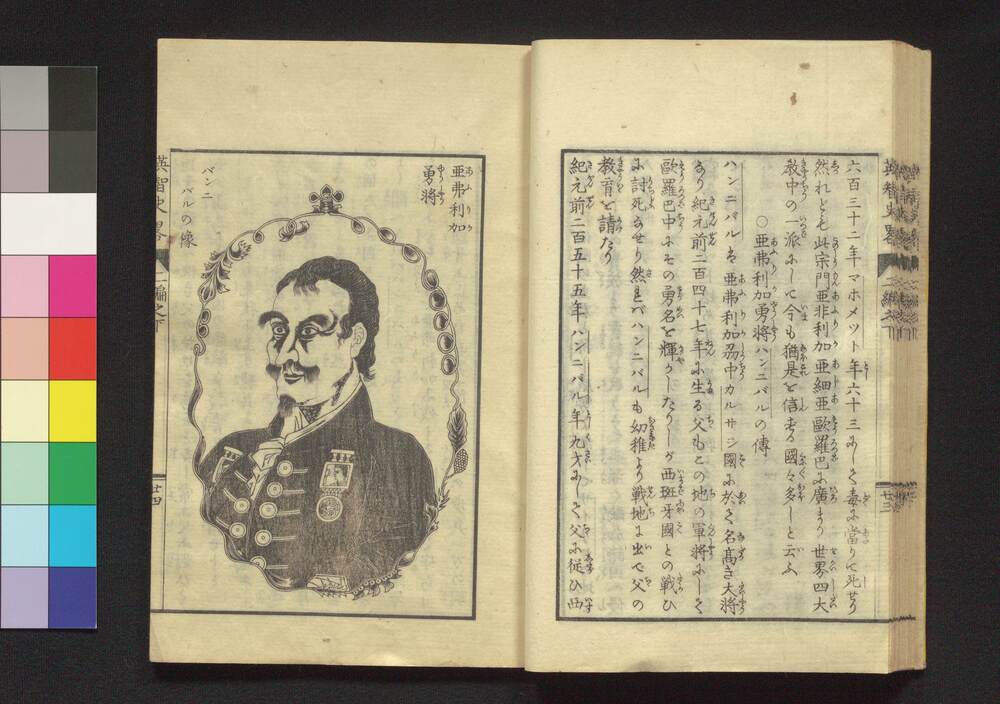 六百三十二年マホメツト年六十三にして毒に當りて死せり
然れども此宗門亜非利加亜細亜歐羅巴に廣まり世界四大
教中の一派にして今も猶是を信ずる國々多しと云ふ
○亜弗利加勇将ハンニバルの傳
ハンニバルは亜弗利加州中カルサシ國に於て名高き大将
なり紀元前二百四十七年に生る父もこの地の軍将にして
歐羅巴中にその勇名を輝かしたりしが西班牙國との戦ひ
に討死なせり然ればハンニバルも幼稚より戦地に出で父の
教育を請たり
紀元前二百五十五年ハンニバル年九才にして父に従ひ西
亜弗利加
勇将
バンニ
バルの像
英智史畧
二編之下
廿四